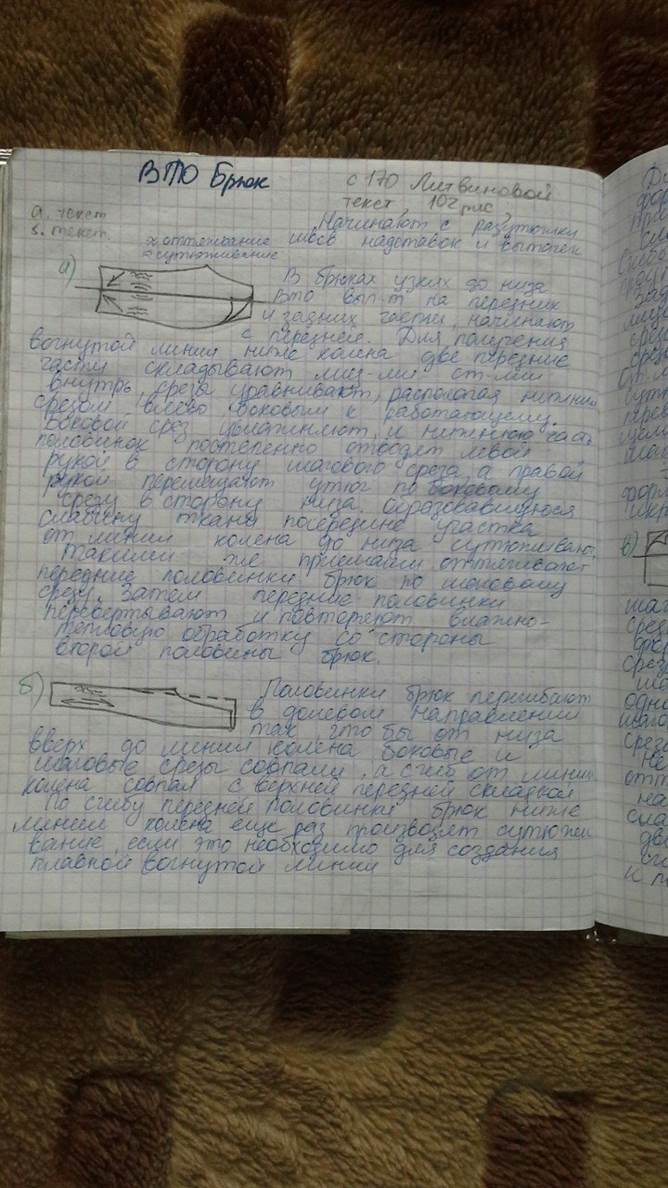 ВТО Брюк
с 170 Литвиновой
текст, 102 рис,
а. текст
Начинают с разутюжки
в. текст.
оттягивание швов надставок и вытачек
сутюживание
а)
В брюках узких до низа
ВТО вып-т на передних
и задних частях, начинают
с передней. Для получения
вогнутой линии ниже колена две передние
части складывают лиц-ми ст-ми
внутрь, срезы уравнивают, располагая нижним
срезом влево боковым к работающему.
Боковой срез увлажняют и нижнюю часть
половинок постепенно отводят левой
рукой в сторону шагового среза, а правой
рукой перемещают утюг по боковому
срезу в сторону низа. Образовавшуюся
слабину ткани посередине участка
от линии колена до низа сутюживают.
Такими же приемами оттягивают
передние половинки брюк по шаговому
срезу. Затем передние половинки
перевертывают и повторяют влажно-
тепловую обработку со стороны
второй половины брюк.
б)
Половинки брюк перегибают
в долевом направлении
так, что бы от низа
вверх до линии колена боковые и
шаговые срезы совпали, а сгиб от линии
колена совпал с верхней передней складкой
По сгибу передней половинки брюк ниже
линии колена еще раз производят сутюжи
вание, если это необходимо для создания
плавной вогнутой линии
в)